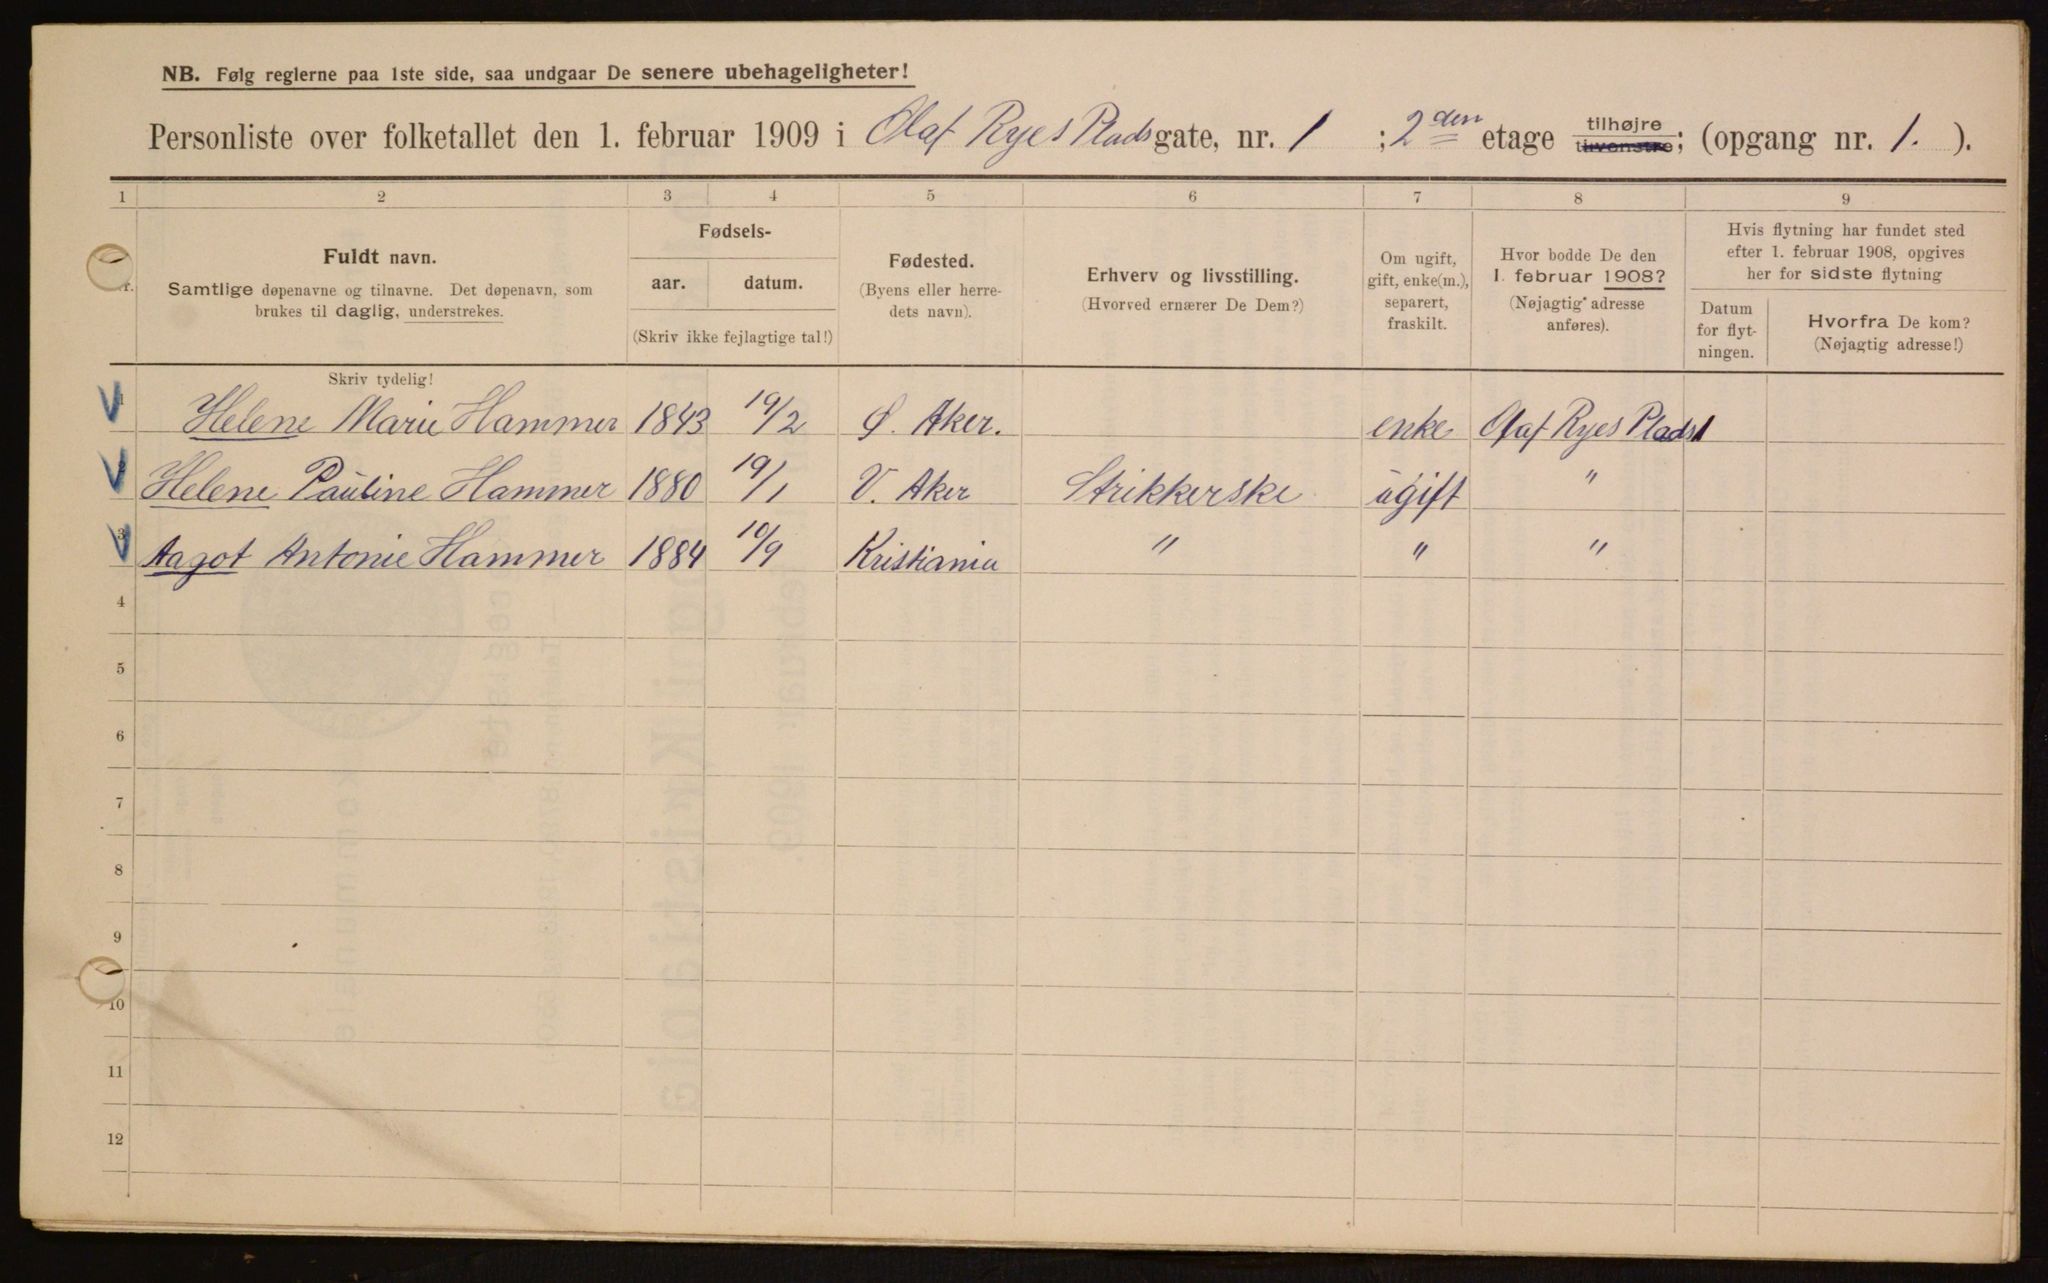 NB. Følg reglerne paa 1ste side, saa undgaar De senere ubehageligheter!
Personliste over folketallet den 1. februar 1909 i Olaf Ryes Plads gate, nr. 1 ; 2den etage tilhøjre tilvenstre; (opgang nr. 1. ).
1 2 3 4 5 6 7 8 9
Fuldt navn.
Samtlige døpenavne og tilnavne. Det døpenavn, som
brukes til daglig, understrekes.
Fødsels-
aar. datum.
(Skriv ikke fejlagtige tal!)
Fødested.
(Byens eller herre-
dets navn).
Erhverv og livsstilling.
(Hvorved ernærer De Dem?)
Om ugift,
gift, enke(m.),
separert,
fraskilt.
Hvor bodde De den
1. februar 1908?
(Nøjagtig adresse
anføres).
Hvis flytning har fundet sted
efter 1. februar 1908, opgives
her for sidste flytning
Datum
for flyt-
ningen.
Hvorfra De kom?
(Nøjagtig adresse!)
Skriv tydelig!
1 Helene Marie Hammer 1843 19/2 Ø. Aker. enke Olaf Ryes Plads 1
2 Helene Pauline Hammer 1880 19/1 V. Aker Strikkerske ugift "
3 Aagot Antonie Hammer 1884 10/9 Kristiania " " "
4
5
6
7
8
9
10
11
12